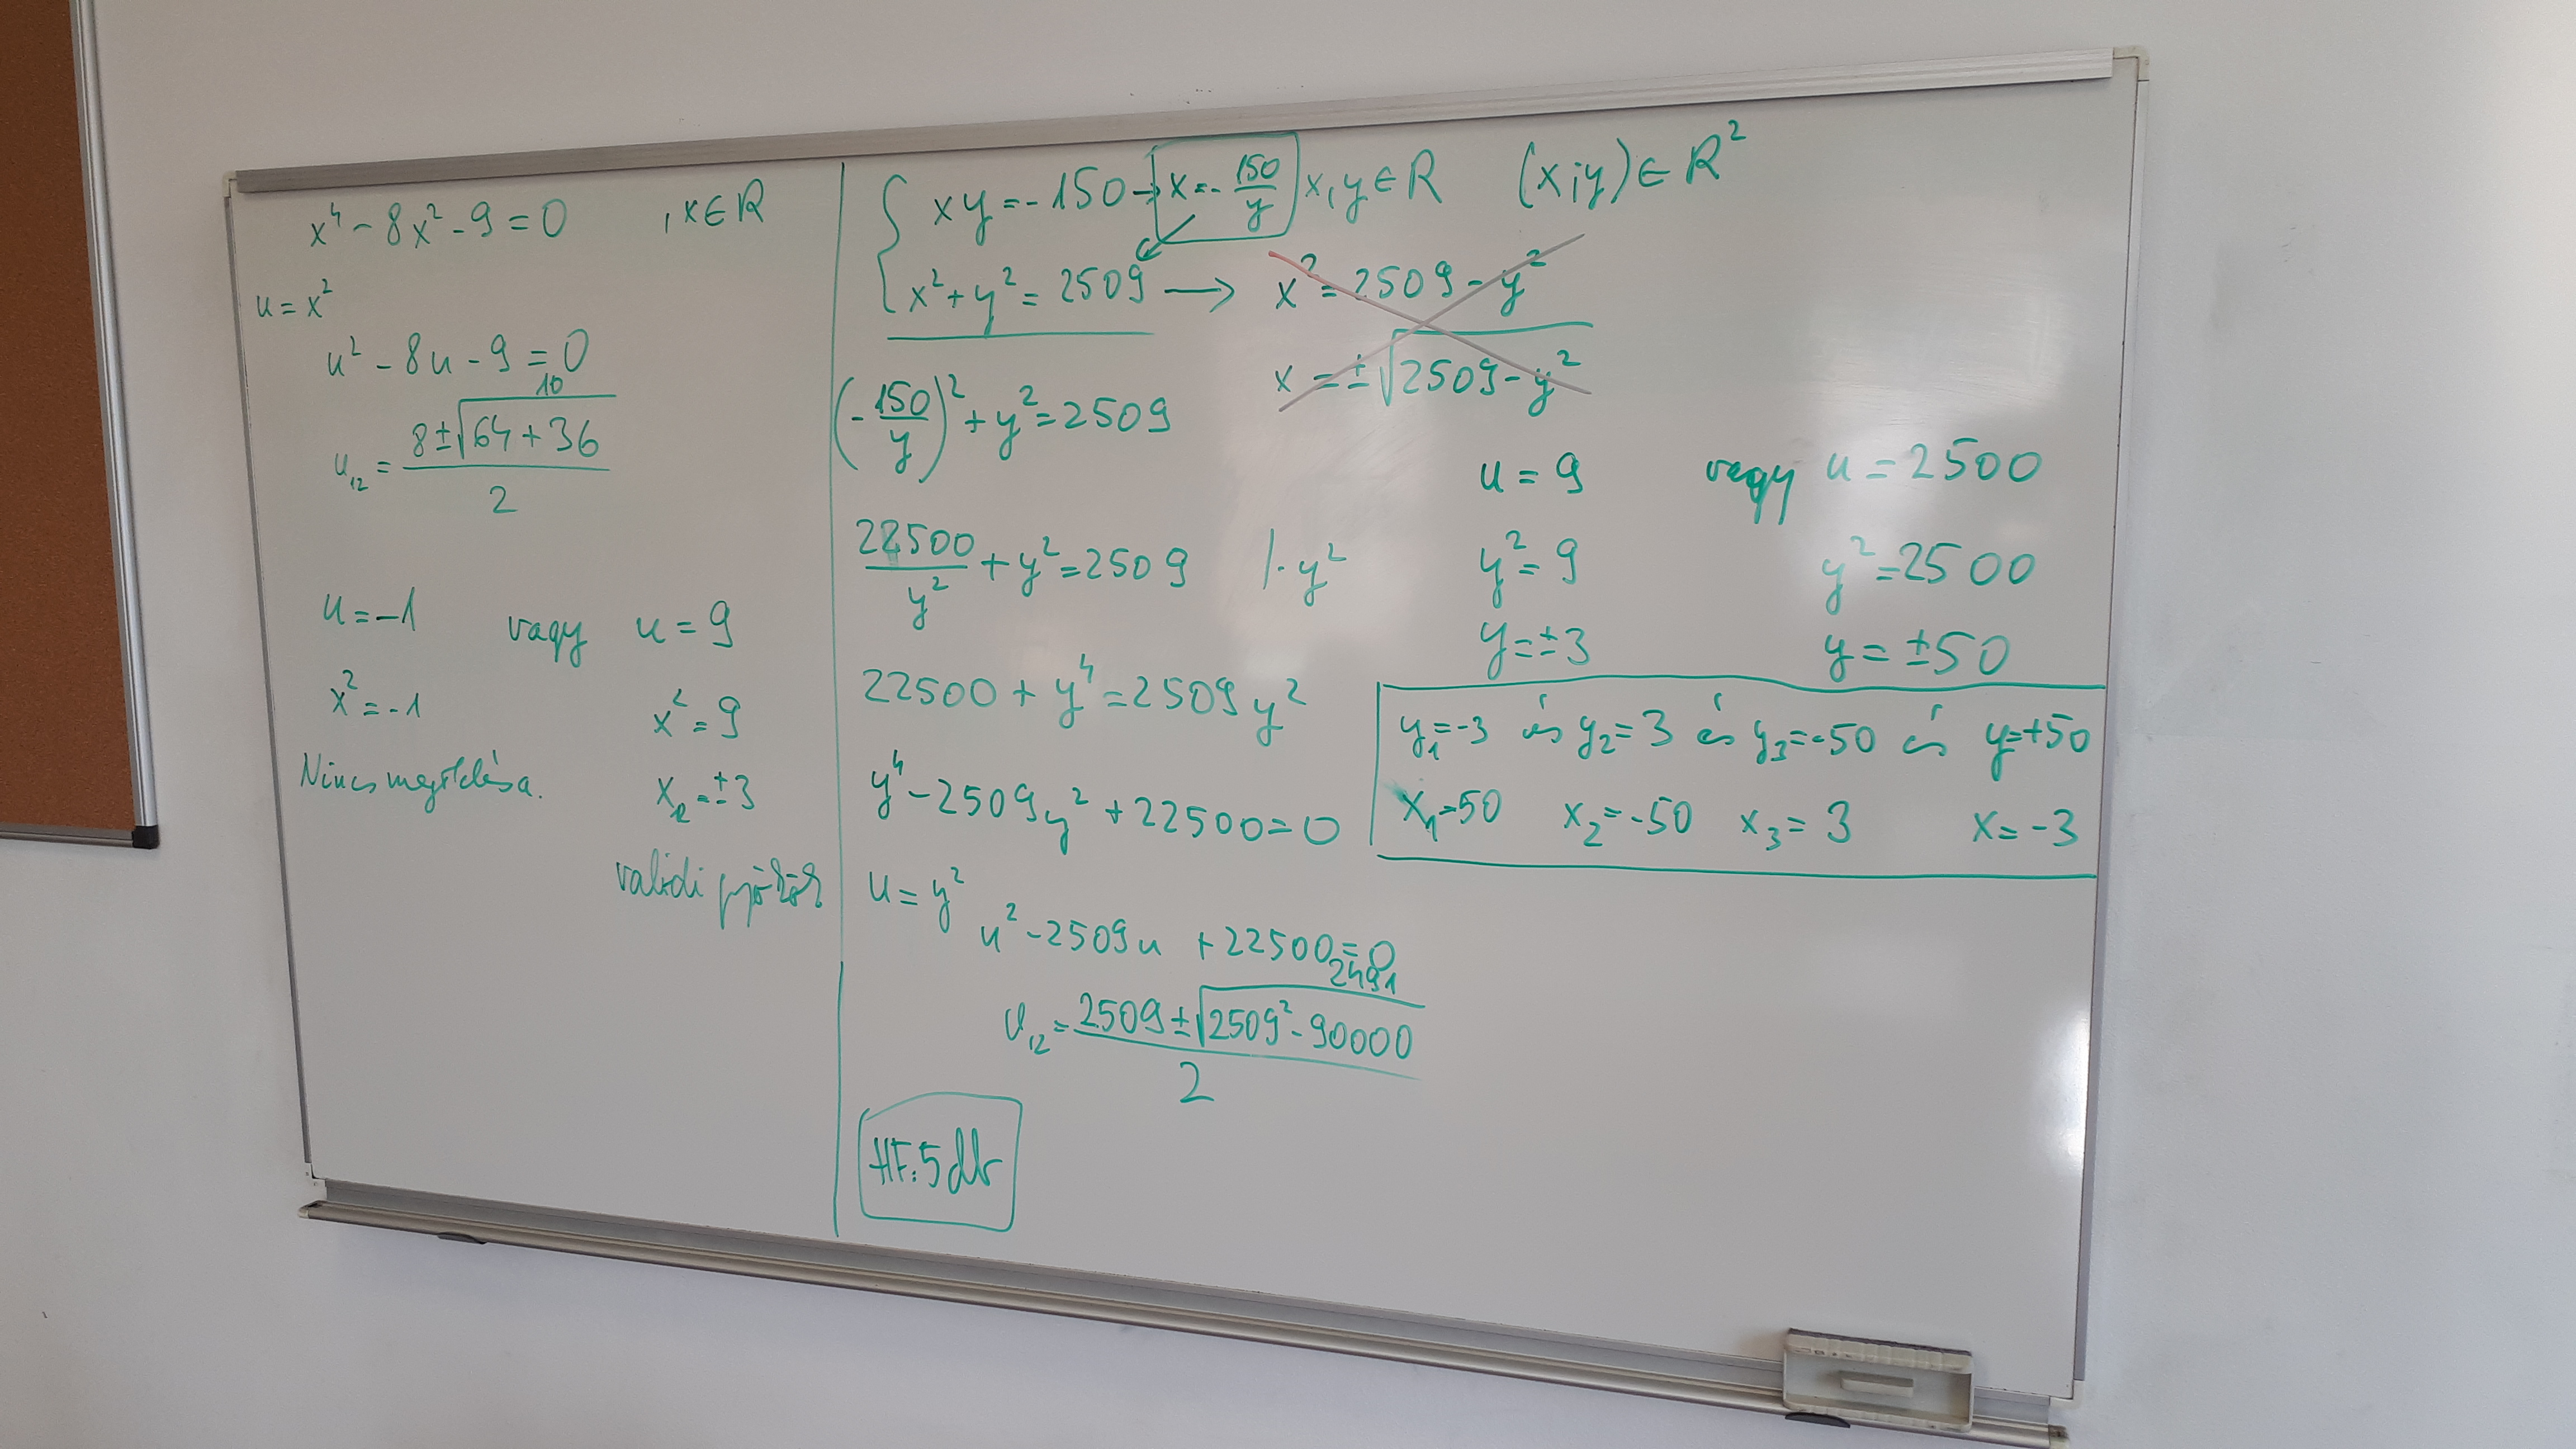 x⁴ - 8x² - 9 = 0 , x ∈ R
u = x²
u² - 8u - 9 = 0
10
u₁₂ = (8 ± √(64 + 36)) / 2
u = -1 vagy u = 9
x² = -1 x² = 9
Nincs megoldása. x₁₂ = ± 3
valódi gyökök
{ xy = -150 → x = - 150/y x, y ∈ R (x;y) ∈ R²
x² + y² = 2509 → x² = 2509 - y²
x = ± √(2509 - y²)
(- 150/y)² + y² = 2509
22500/y² + y² = 2509 / · y²
22500 + y⁴ = 2509 y²
y⁴ - 2509 y² + 22500 = 0
u = y²
u² - 2509u + 22500 = 0
2491
u₁₂ = (2509 ± √(2509² - 90000)) / 2
HF: 5 db
u = 9 vagy u = 2500
y² = 9 y² = 2500
y = ± 3 y = ± 50
y₁ = -3 és y₂ = 3 és y₃ = -50 és y = +50
x₁ = 50 x₂ = -50 x₃ = 3 x = -3